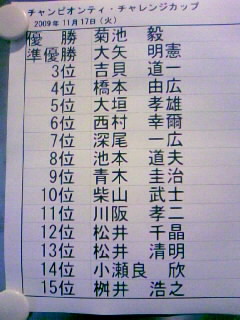 チャンピオンティ・チャレンジカップ
2009年11月17日（火）
優勝 菊池 毅
準優勝 大矢 明憲
3位 吉貝 道一
4位 橋本 由広
5位 大垣 孝雄
6位 西村 幸爾
7位 深尾 一広
8位 池本 道夫
9位 青木 圭治
10位 柴山 武士
11位 川阪 孝二
12位 松井 千晶
13位 松井 清明
14位 小瀬良 欣
15位 桝井 浩之